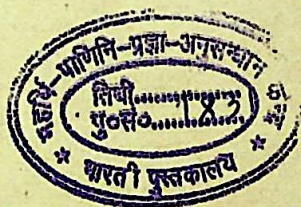 महर्षि-पाणिनि-प्रज्ञा-अनुसन्धान
तिथी..............
पु०सं०........83
* भारती पुस्तकालय *